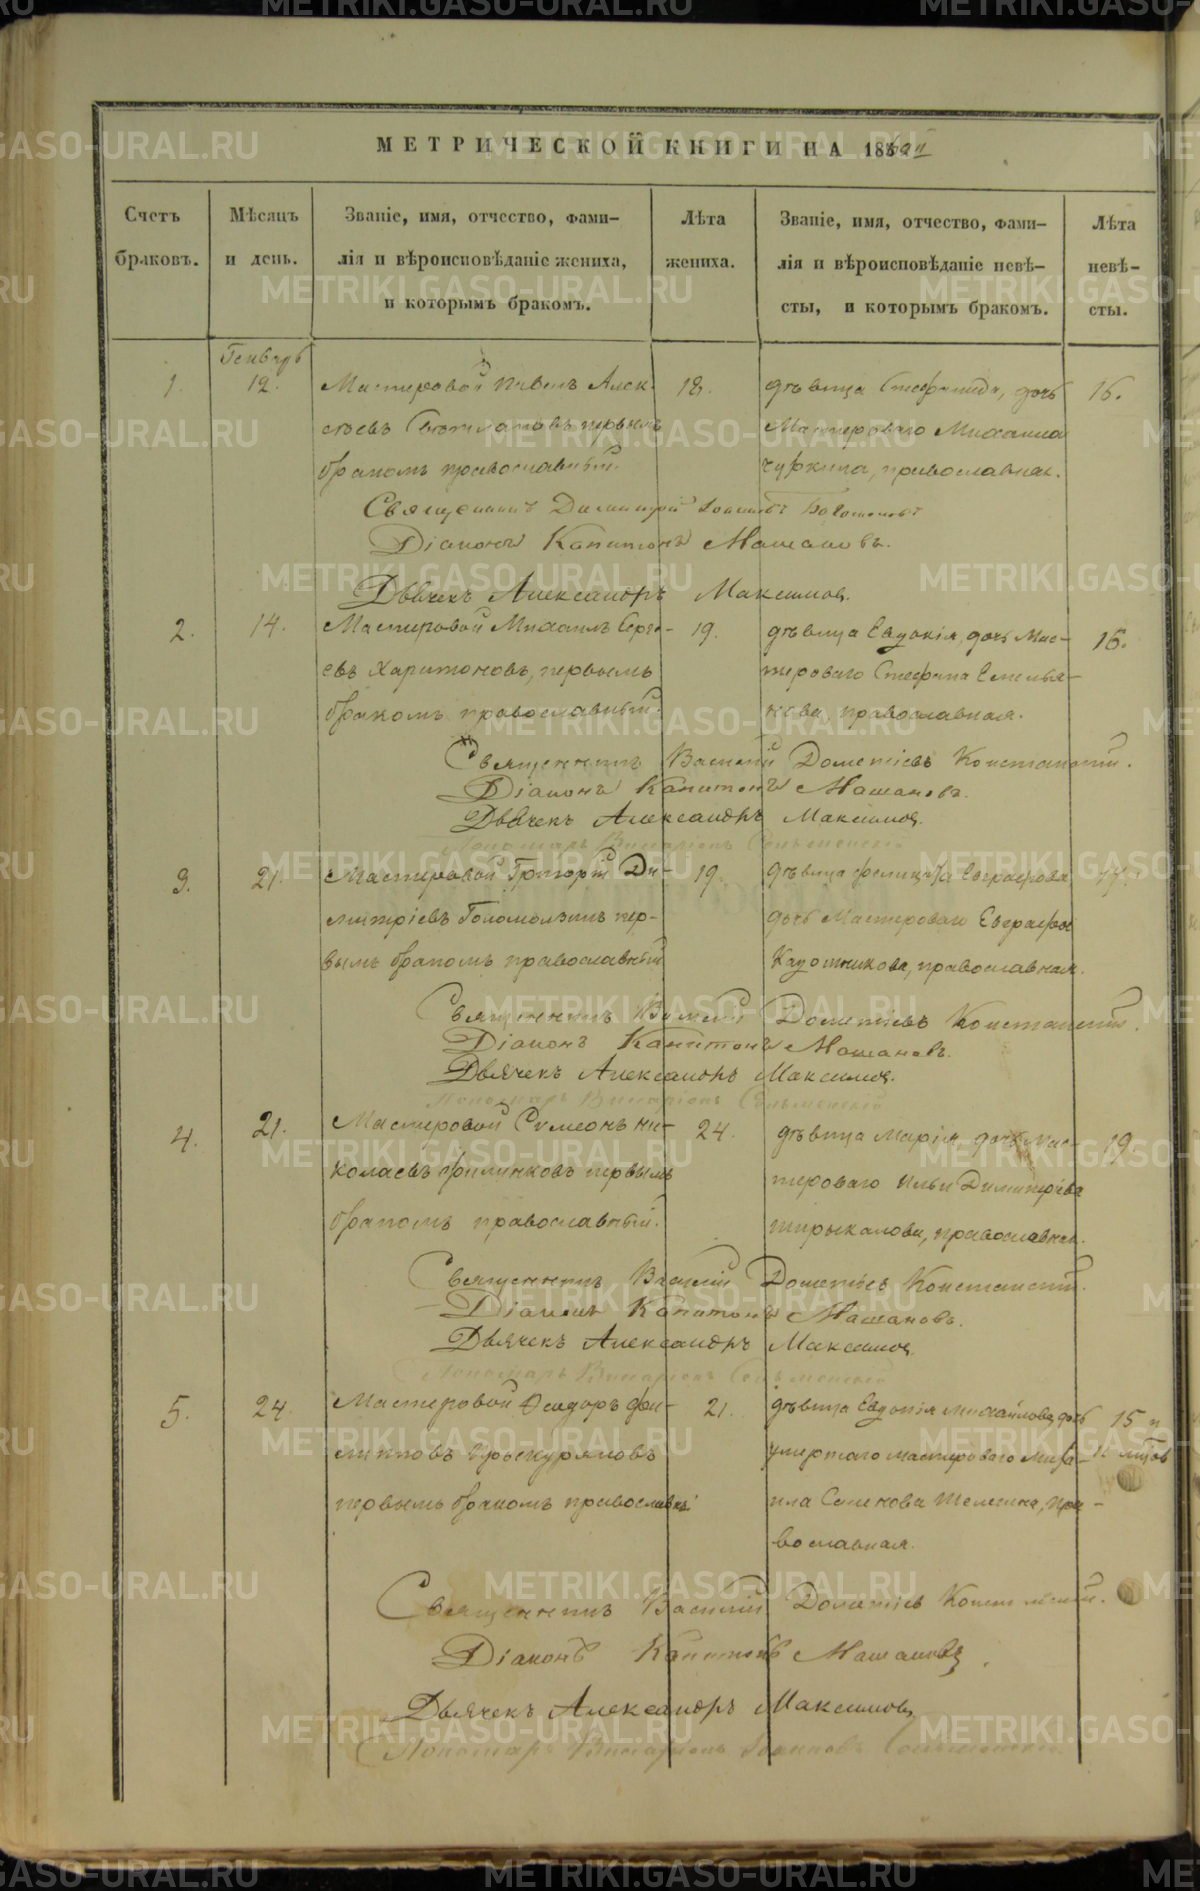 МЕТРИЧЕСКОЙ КНИГИ НА 18
Счетъ браковъ.
Мѣсяцъ и день.
Званіе, имя, отчество, фами-
лія и вѣроисповѣданіе жениха,
и которымъ бракомъ.
Лѣта жениха.
Званіе, имя, отчество, фами-
лія и вѣроисповѣданіе невѣ-
сты, и которымъ бракомъ.
Лѣта невѣ-
сты.
Генварь
1.
12.
Мастеровой Павелъ Алек-
сѣевъ первымъ
бракомъ православный.
18.
дѣвица Стефанида, дочь
Мастероваго Михаила
Чуркина, православная.
16.
Священникъ Димитрій Іоанновъ
Діаконъ Капитонъ Машановъ.
Дьячекъ Александръ Максимов.
2.
14.
Мастеровой Михаилъ Серге-
евъ Харитоновъ, первымъ
бракомъ православный.
19.
дѣвица Евдокія, дочь Мас-
тероваго Стефана Емелья-
нова, православная.
16.
Священникъ Василій Дометіевъ Константій.
Діаконъ Капитонъ Машановъ.
Дьячекъ Александръ Максимов.
Пономарь
3.
21.
Мастеровой Григорій Ди-
митріевъ Голомолзинъ пер-
вымъ бракомъ православный
19.
дѣвица Фелицата Евграфова
дочь Мастероваго Евграфа
Кадошникова, православная.
Священникъ Василій Дометіевъ Константій.
Діаконъ Капитонъ Машановъ.
Дьячекъ Александръ Максимов.
Пономарь
4.
21.
Мастеровой Симеонъ Ни-
колаевъ Филинковъ первымъ
бракомъ православный.
24.
дѣвица Марія дочь Мас-
тероваго Ильи Димитріева
православная.
19
Священникъ Василій Дометіев Константій.
Діаконъ Капитонъ Машановъ.
Дьячекъ Александръ Максимов
Пономарь
5.
24
Мастеровой Ѳеодоръ Фи-
липповъ Проскуряковъ
первымъ бракомъ православный
21.
дѣвица Евдокія Михайлова, дочь
умершаго мастероваго Миха-
ила Семенова пра-
вославная.
15 и
Священникъ Василій Дометіев
Діаконъ Капитонъ Машановъ.
Дьячекъ Александръ Максимовъ
Пономарь
METRIKI.GASO-URAL.RU